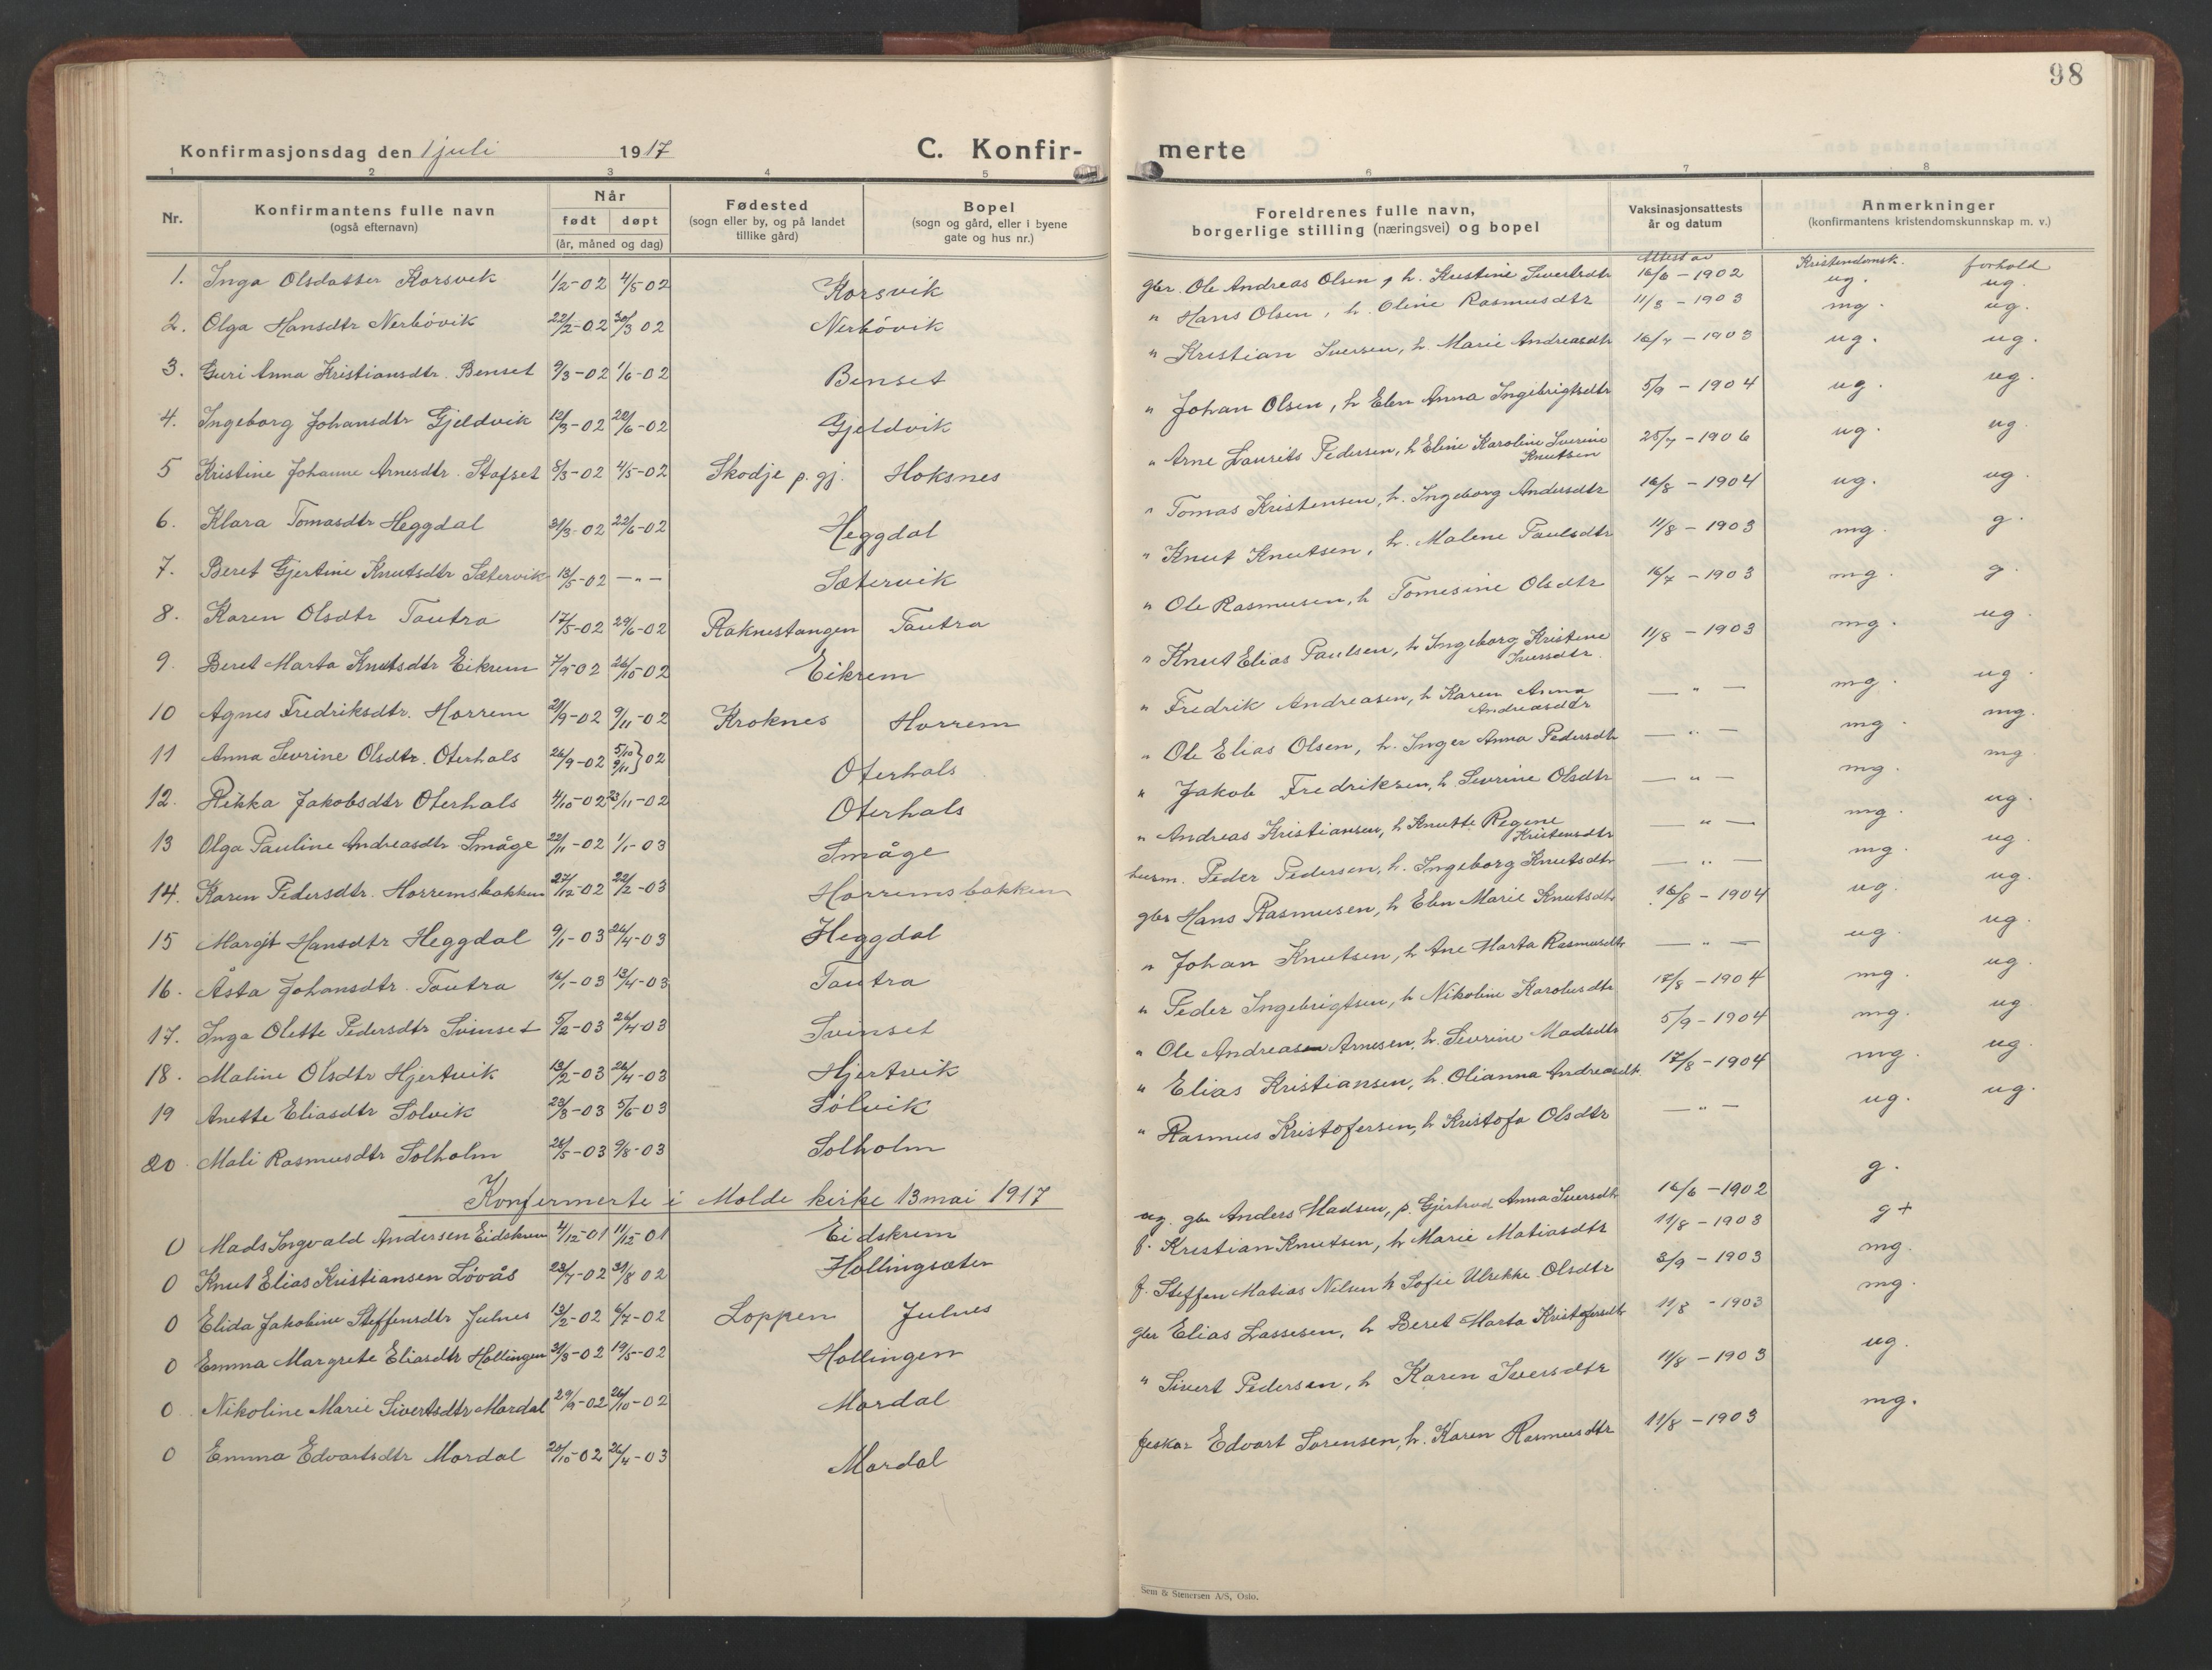 98
Konfirmasjonsdag den 1 juli 1917
C. Konfir-
merte
1 2 3 4 5 6 7 8
Nr. Konfirmantens fulle navn (også efternavn) Når født døpt (år, måned og dag) Fødested (sogn eller by, og på landet tillike gård) Bopel (sogn og gård, eller i byene gate og hus nr.)
Foreldrenes fulle navn, borgerlige stilling (næringsvei) og bopel Vaksinasjonsattests år og datum Anmerkninger (konfirmantens kristendomskunnskap m. v.)
Attest av Kristendomsk. forhold
1. Inga Olsdatter Korsvik 1/2-02 4/5-02 Korsvik
2. Olga Hansdtr Nerbövik 22/2-02 30/3 02 Nerbövik
3. Guri Anna Kristiansdtr. Benset 9/3-02 1/6-02 Benset
4. Ingeborg Johansdtr Gjeldvik 12/3-02 22/6-02 Gjeldvik
5 Kristine Johanne Arnesdtr. Stafset 8/3-02 4/5-02 Skodje p. gj. Hoksnes
6. Klara Tomasdtr Heggdal 31/3-02 22/6-02 Heggdal
7. Beret Gjertine Knutsdtr Sætervik 13/5-02 — „ — Sætervik
8. Karen Olsdtr Tautra 17/5-02 29/6-02 Raknestangen Tautra
9. Beret Marta Knutsdtr Eikrem 7/9-02 26/10-02 Eikrem
10 Agnes Fredriksdtr. Horrem 21/9-02 9/11-02 Kroknes Horrem
11 Anna Sevrine Olsdtr. Oterhals 26/9-02 5/10 9/11 } 02 Oterhals
12. Rikka Jakobsdtr Oterhals 4/10-02 23/11-02 Oterhals
13 Olga Pauline Andreasdtr Småge 22/11-02 1/1-03 Småge
14. Karen Pedersdtr. Horremsbakken 27/12-02 22/2-03 Horremsbakken
15 Margit Hansdtr Heggdal 9/1-03 26/4-03 Heggdal
16. Åsta Johansdtr. Tautra 16/1-03 13/4-03 Tautra
17. Inga Olette Pedersdtr Svinset 5/2-03 26/4-03 Svinset
18. Maline Olsdtr Hjertvik 13/2-03 26/4-03 Hjertvik
19 Anette Eliasdtr Solvik 23/3-03 5/6-03 Solvik
20. Mali Rasmusdtr Solholm 26/5-03 9/8-03 Solholm
Konfermerte i Molde kirke 13 mai 1917
0 Mads Torgvald Andersen Eidskrem 4/12-01 11/12-01 Eidskrem
0 Knut Elias Kristiansen Lövås 23/7-02 31/8 02 Hollingsæter
0 Elida Jakobine Steffensdtr Julnes 13/2-02 6/7-02 Loppen Julnes
0 Emma Margrete Eliasdtr Hollingen 31/3-02 19/5-02 Hollingen
0 Nikoline Marie Sivertsdtr Mordal 29/9-02 26/10-02 Mordal
0 Emma Edvartsdtr Mordal 20/10-02 26/4-03 Mordal
gbr. Ole Andreas Olsen, h. Kristine Sivertsdtr 16/6-1902 ug. ug.
„ Hans Olsen, h. Oline Rasmusdtr 11/8-1903 mg. ug.
„ Kristian Iversen, h. Marie Andreasdtr 16/7-1903 ug. ug.
„ Johan Olsen, h Elen Anna Ingebrigtsdtr 5/9-1904 ug. ug.
„ Arne Laurits Pedersen, h Eline Karoline Sverine Knutsen 25/7-1906 ug. ug.
„ Tomas Kristensen, h. Ingeborg Andersdtr 16/8-1904 ug. ug.
„ Knut Knutsen, h. Malene Paulsdtr 11/8-1903 mg. g.
„ Ole Rasmusen, h Tomesine Olsdtr 16/7-1903 mg. g.
„ Knut Elias Paulsen, h Ingeborg Kristine Iversdtr. 11/8-1903 mg. ug.
„ Fredrik Andreasen, h Karen Anna Andreasdtr — „ — mg. ug.
„ Ole Elias Olsen, h. Inger Anna Pedersdtr — „ — mg. mg.
„ Jakob Fredriksen, h. Sevrine Olsdtr — „ — mg. mg
„ Andreas Kristiansen, h Knutte Regene Kristensdtr — „ — mg. ug.
husm. Peder Pedersen, h. Ingeborg Knutsdtr — „ — mg. ug.
gbr Hans Rasmusen, h Elen Marie Knutsdtr 16/8-1904 ug. ug.
„ Johan Knutsen, h Ane Marta Rasmusdtr — „ — ug. ug.
„ Peder Ingebrigtsen, h Nikoline Karolusdtr 17/8-1904 mg. ug.
„ Ole Andreas Arnesen, h. Sevrine Madsdtr 5/9-1904 mg. ug.
„ Elias Kristiansen, h. Olianna Andreasdtr. 17/8-1904 mg. ug.
„ Rasmus Kristofersen, h Kristofa Olsdtr — „ — ug. ug.
ug. gbr Anders Madsen, p. Gjertrud Anna Iversdtr 16/6-1902 g.
f. Kristian Knutsen, h Marie Matiasdtr 11/8-1903 g+
f. Steffen Matias Nilsen h Sofie Ulrekke Olsdtr 3/9-1903 mg.
gbr Elias Lassesen, h Beret Marta Kristofersdtr 11/8-1903 mg.
„ Sivert Pedersen, h Karen Iversdtr 11/8-1903 ug.
fiskar Edvart Sorensen, h. Karen Rasmusdtr 11/8-1903 mg.
Sem & Stenersen A/S, Oslo.